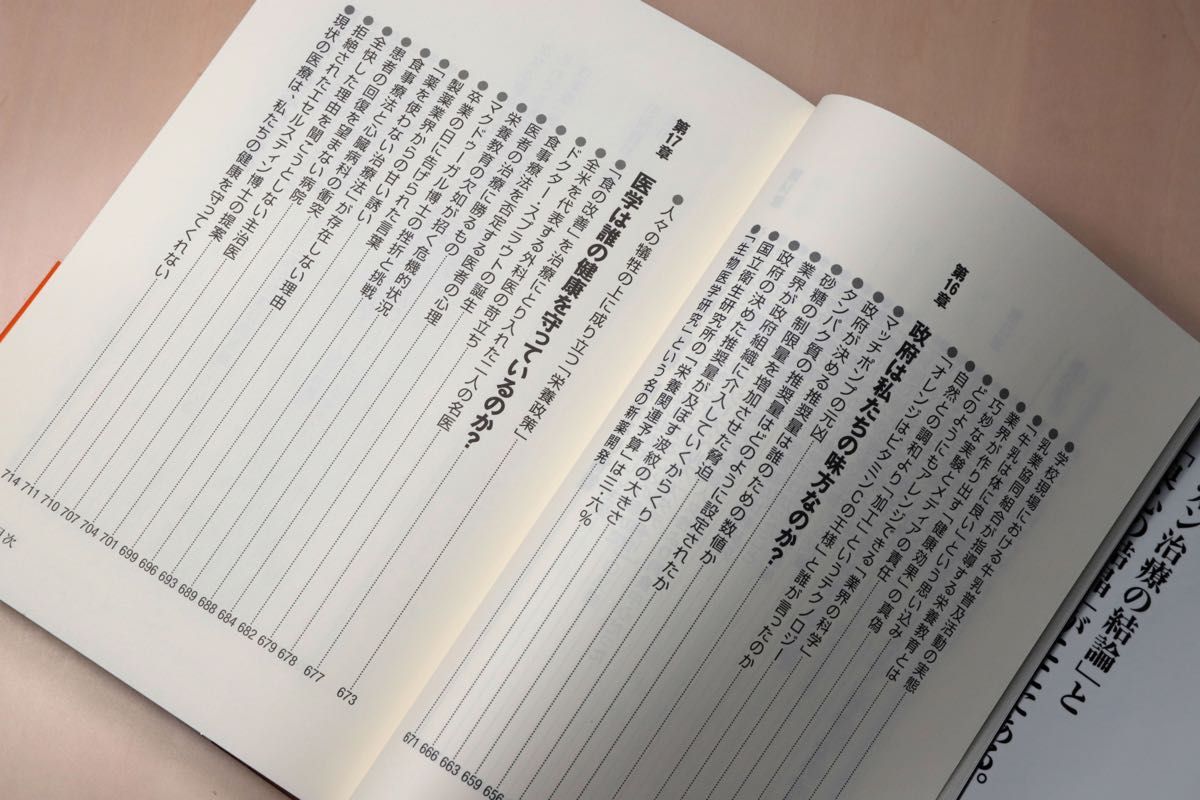 ●学校現場における牛乳普及活動の実態
●乳業協同組合が指導する栄養教育とは
●「牛乳は体に良い」という思い込み
●業界が作り出す「健康効果」の真偽
●巧妙な実験とメディアの責任
●どのようにもアレンジできる「業界の科学」
●自然との調和より「加工」というテクノロジー
●「オレンジはビタミンCの王様」と誰が言ったのか
第16章 政府は私たちの味方なのか？
●マッチポンプの元凶
●政府が決める推奨量は誰のための数値か
●タンパク質の推奨量はどのように設定されたか
●砂糖の制限量を増加させた脅迫 656
●業界が政府組織に介入していくからくり 659
●政府の決めた推奨量が及ぼす波紋の大きさ 663
●国立衛生研究所の「栄養関連予算」は三・六% 666
●「生物医学研究」という名の新薬開発 671
●人々の犠牲の上に成り立つ「栄養政策」 673
第17章 医学は誰の健康を守っているのか？ 677
●「食の改善」を治療にとり入れた二人の名医 678
●全米を代表する外科医の苛立ち 679
●ドクター・スプラウトの誕生 682
●食事療法を否定する医者の心理 684
●医者の治療に勝るもの 688
●栄養教育の欠如が招く危機的状況 689
●マクドゥーガル博士の挫折と挑戦 693
●卒業の日に告げられた言葉 696
●製薬業界からの甘い誘い 699
●「薬を使わない治療法」が存在しない理由 701
●食事療法と心臓病科の衝突 704
●患者の回復を望まない病院 707
●全快した理由を聞こうとしない主治医 710
●拒絶されたエセルスティン博士の提案 711
●現状の医療は、私たちの健康を守ってくれない 714
目次
ン治療の結論」と